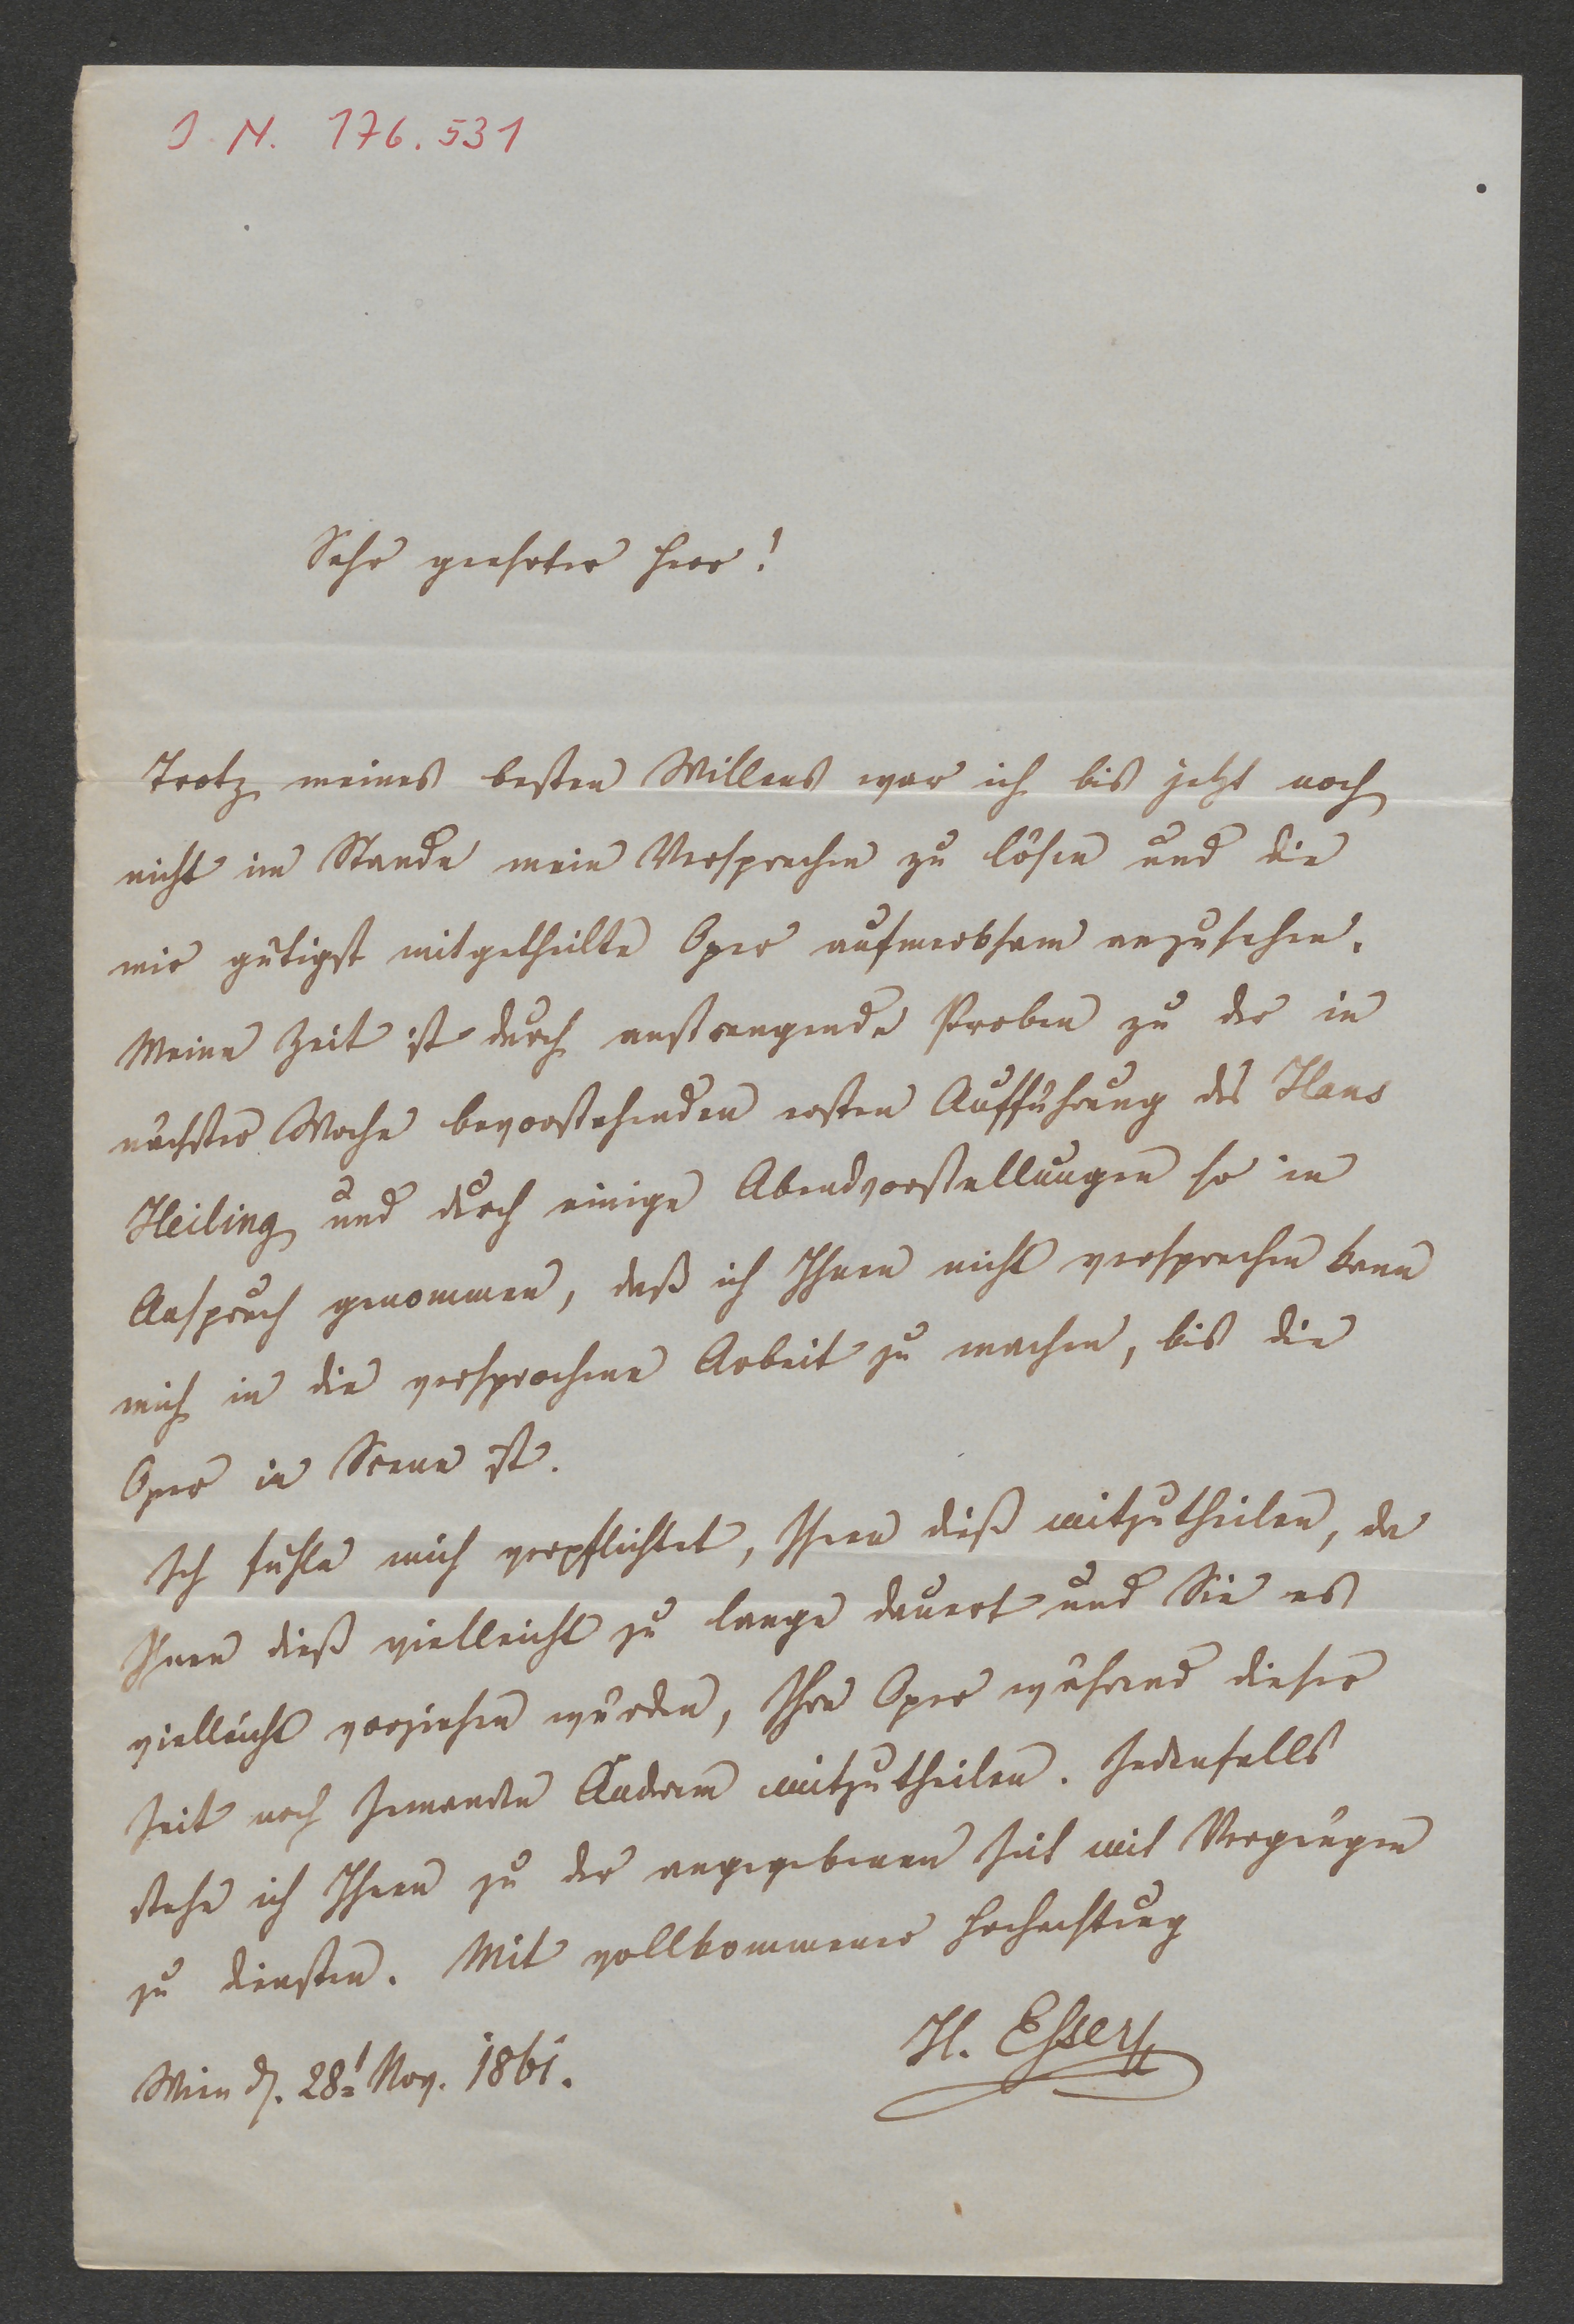 J. N. 176.531
Sehr geehrter Herr!
Trotz meines besten Willens war ich bis jetzt noch
nicht im Stande mein Versprechen zu lösen und die
mir gütigst mitgetheilte Oper aufmerksam anzusehen.
Meine Zeit ist durch anstrengende Proben zu der in
nächster Woche bevorstehenden ersten Aufführung des Hans
Heiling und durch einige Abendvorstellungen so in
Anspruch genommen, daß ich Ihnen nicht versprechen kann
mich in die versprochene Arbeit zu machen, bis die
Oper in Scene ist.
Ich fühle mich verpflichtet, Ihnen dieß mitzutheilen, da
Ihnen dieß vielleicht zu lange dauert und Sie es
vielleicht vorziehen würden, Ihre Oper während dieser
Zeit noch Jemanden Anderem mitzutheilen. Jedenfalls
stehe ich Ihnen zu der angegebenen Zeit mit Vergnügen
zu diensten. Mit vollkommener Hochachtung
H. Esser
Wien d. 28t Nov. 1861.